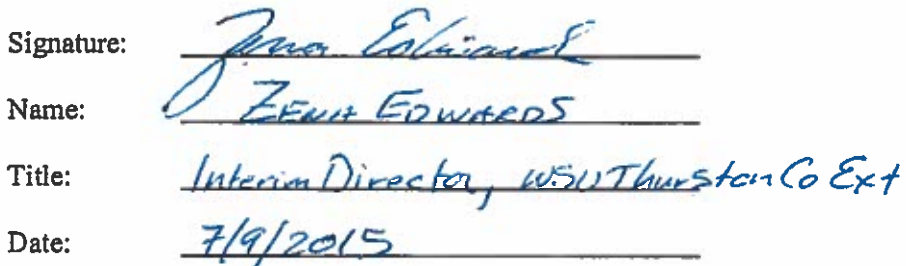 Signature: Zena Edwards
Name: ZENA EDWARDS
Title: Interim Director, WSU Thurston Co Ext
Date: 7/9/2015